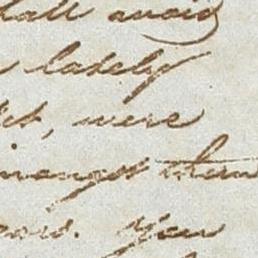 shall avoid
lately
were
amongst them
You